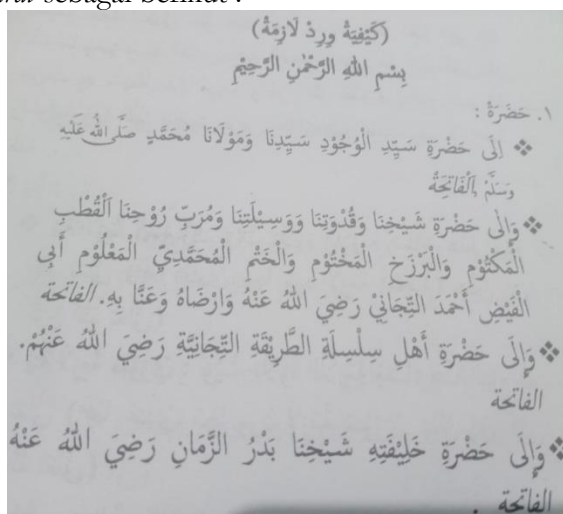 sebagai berikut :
(كَيْفِيَّةُ وِرِدْ لَازِمَةْ)
بِسْمِ اللهِ الرَّحْمٰنِ الرَّحِيْمِ
١. حَضْرَةْ :
❖ إِلَى حَضْرَةِ سَيِّدِ الْوُجُوْدِ سَيِّدِنَا وَمَوْلَانَا مُحَمَّدٍ صَلَّى اللهُ عَلَيْهِ
وَسَلَّمْ اَلْفَاتِحَةْ
❖ وَإِلَى حَضْرَةِ شَيْخِنَا وَقُدْوَتِنَا وَوَسِيْلَتِنَا وَمُرَبِّ رُوْحِنَا اَلْقُطْبِ
الْمَكْتُوْمِ وَالْبَرْزَخِ الْمَخْتُوْمِ وَالْخَتْمِ الْمُحَمَّدِيِّ الْمَعْلُوْمِ أَبِى
الْفَيْضِ أَحْمَدَ التِّجَانِيْ رَضِيَ اللهُ عَنْهُ وَارْضَاهُ وَعَنَّا بِهِ. الفاتحة
❖ وَإِلَى حَضْرَةِ أَهْلِ سِلْسِلَةِ الطَّرِيْقَةِ التِّجَانِيَّةِ رَضِيَ اللهُ عَنْهُمْ.
الفاتحة
❖ وَإِلَى حَضْرَةِ خَلِيْفَتِهِ شَيْخِنَا بَدْرُ الزَّمَانِ رَضِيَ اللهُ عَنْهُ
الفاتحة .